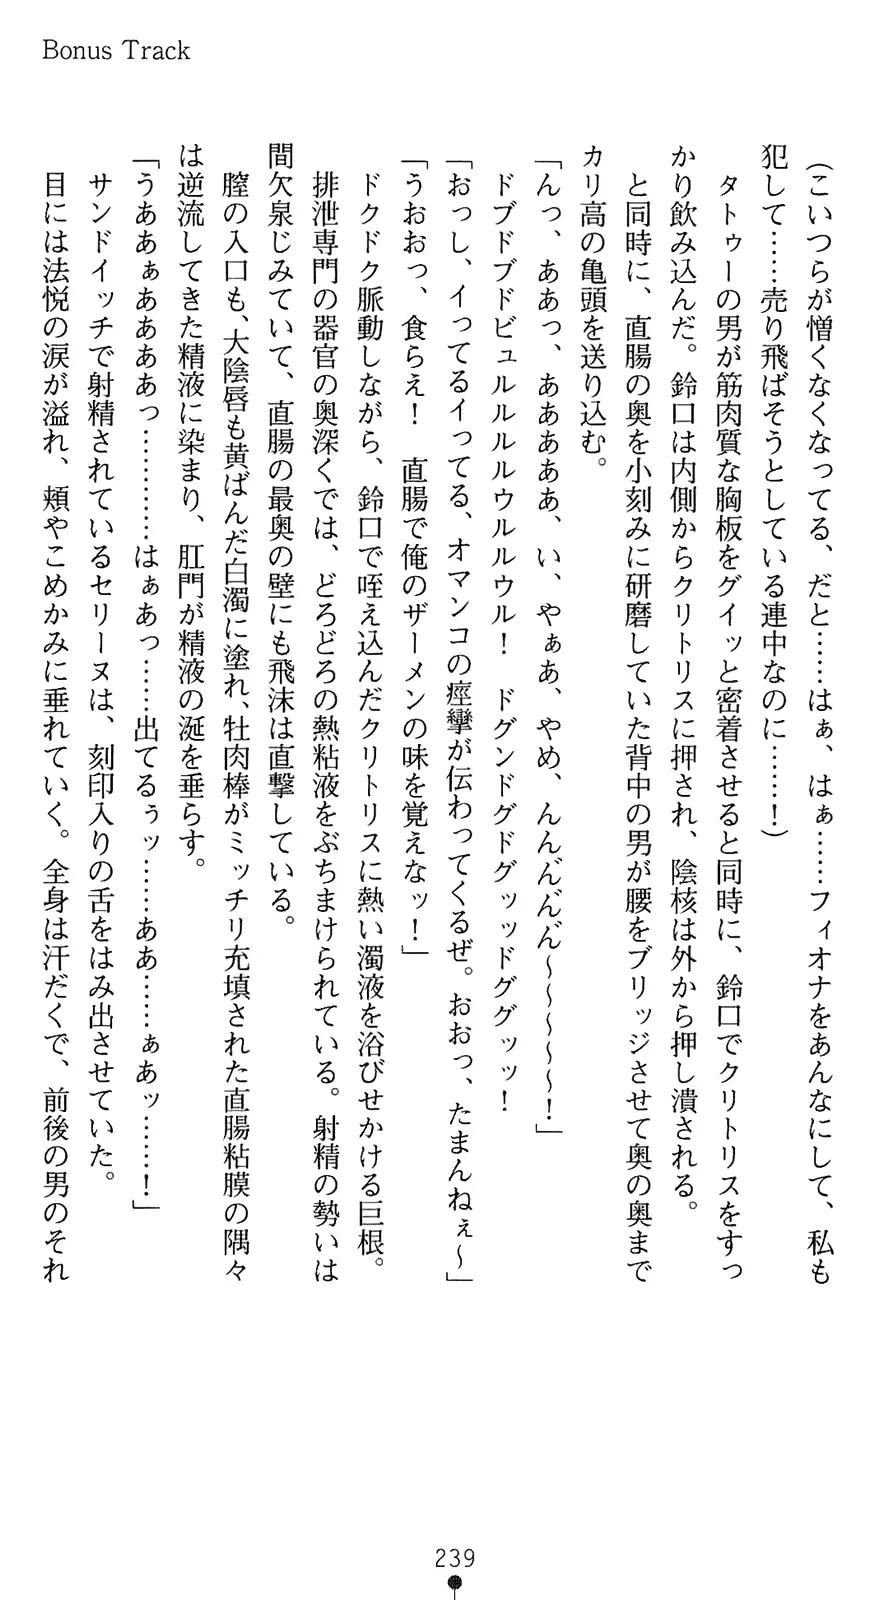 Bonus Track
(こいつらが憎くなくなってる、だと……はぁ、はぁ……フィオナをあんなにして、私も
犯して……売り飛ばそうとしている連中なのに……!)
タトゥーの男が筋肉質な胸板をグイッと密着させると同時に、鈴口でクリトリスをすっ
かり飲み込んだ。鈴口は内側からクリトリスに押され、陰核は外から押し潰される。
と同時に、直腸の奥を小刻みに研磨していた背中の男が腰をブリッジさせて奥の奥まで
カリ高の亀頭を送り込む。
「んっ、ああっ、あああああ、い、やぁあ、やめ、んんん゛ん゛ん゛～～～～～!」
ドブドブドビュルルルルウルルウル! ドグンドグドグッッドググッッ!
「おっし、イってるイってる、オマンコの痙攣が伝わってくるぜ。おおっ、たまんねぇ～」
「うおおっ、食らえ! 直腸で俺のザーメンの味を覚えなッ!」
ドクドク脈動しながら、鈴口で咥え込んだクリトリスに熱い濁液を浴びせかける巨根。
排泄専門の器官の奥深くでは、どろどろの熱粘液をぶちまけられている。射精の勢いは
間欠泉じみていて、直腸の最奥の壁にも飛沫は直撃している。
膣の入口も、大陰唇も黄ばんだ白濁に塗れ、牡肉棒がミッチリ充填された直腸粘膜の隅々
は逆流してきた精液に染まり、肛門が精液の涎を垂らす。
「うああぁああああっ…………はぁあっ……出てるぅッ……ああ……ぁあッ……!」
サンドイッチで射精されているセリーヌは、刻印入りの舌をはみ出させていた。
目には法悦の涙が溢れ、頬やこめかみに垂れていく。全身は汗だくで、前後の男のそれ
239